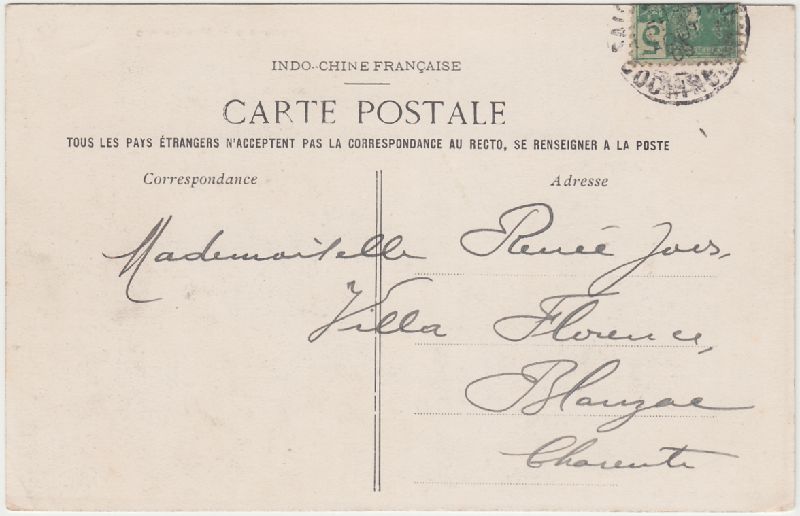 INDO-CHINE FRANÇAISE
CARTE POSTALE
TOUS LES PAYS ÉTRANGERS N'ACCEPTENT PAS LA CORRESPONDANCE AU RECTO, SE RENSEIGNER A LA POSTE
Correspondance
Adresse
5
COCHIN
Mademoiselle Renée
Villa Florence,
Blanzac
Charente